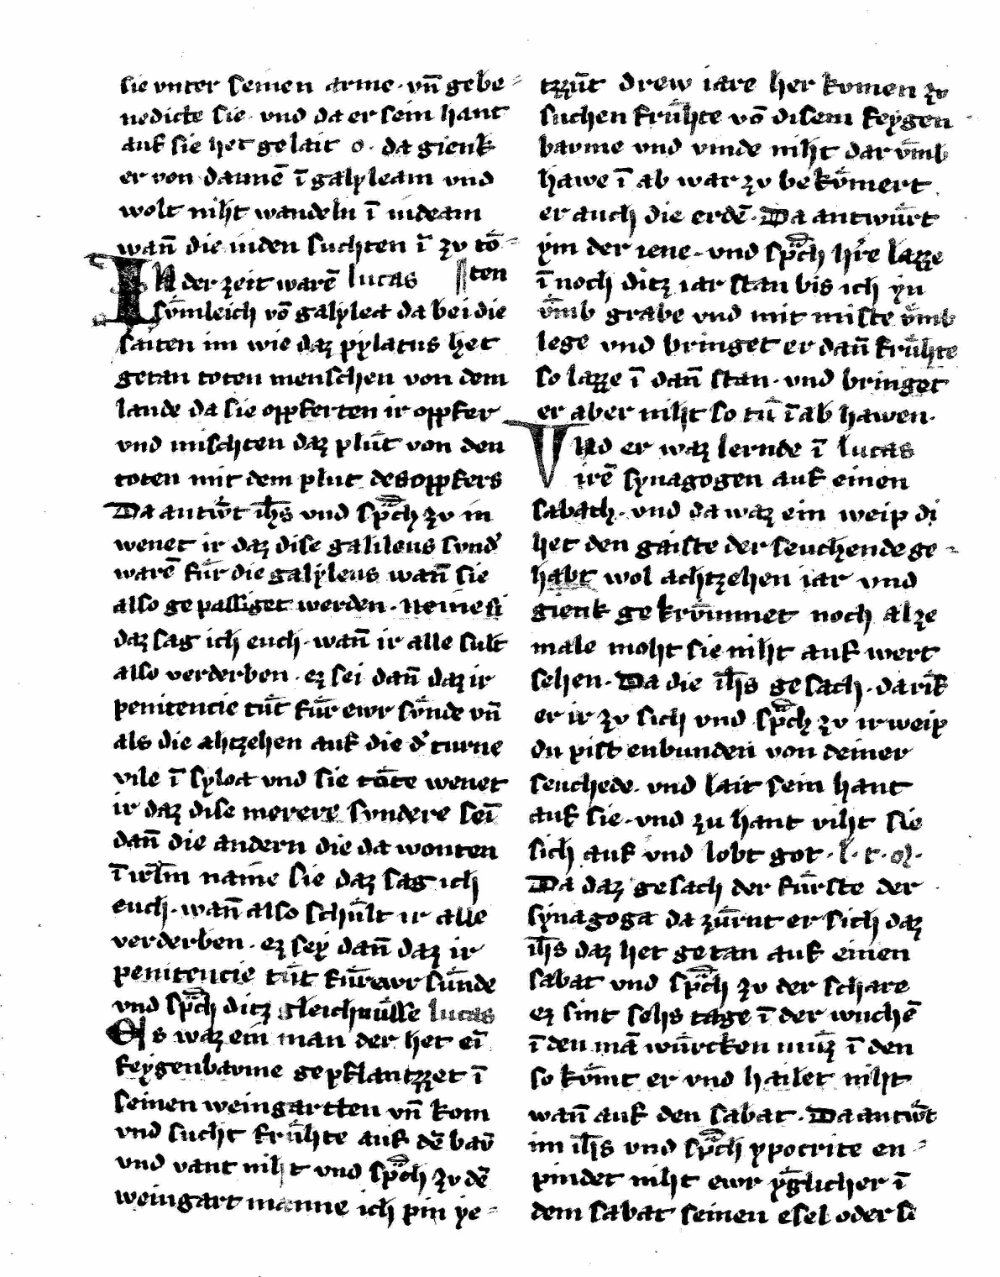 sie vnter seinen arme · vn̄ gebe⸗
nedicte sie · vnd da er sein hant
auf sie het gelait o · da gienk
er von dannē ī galyleam vnd
wolt niht wandeln ī iudeam
wan̄ die iuden suchten ī zv tō⸗
ten
IN der zeit warē lucas
sv̄mleich vō galylea da bei die
saiten im wie daz pylatus het
getan toten menschen von dem
lande da sie opferten ir opfer
vnd mischten daz plůt von den
toten mit dem plut des opfers
Da antw̄t ih̄s vnd sp͛ch zv in
wenet ir daz dise galileus sund͛
warē fůr die galyleus wan̄ sie
also gepassiget werden · neinesi
daz sag ich euch · wan̄ ir alle sult
also verderben · ez sei dan̄ daz ir
penitencie tůt fůr ewr sůnde vn̄
als die ahtzehen auf die d͛ turne
vile ī syloa vnd sie tōte wenet
ir daz dise merere svndere sei̅
dan̄ die andern die da wonten
ī irl̄m name sie daz sag ich
euch · wan̄ also schůlt ir alle
verderben · ez sey dan̄ daz ir
penitencie tůt fůr ewr sůnde
vnd sp͛ch ditz gleichnůsse lucas
Es waz ein man der het ei̅
feygenbavme gepflantzzet ī
seinen weingartten vn̄ kom
vnd sucht frůhte auf dē bav̄
vnd vant niht vnd sp͛ch zv dē
weingart manne ich pin ye⸗
tzzůt drew iare her komen zv
suchen frůhte vō disem feygen
bavme vnd vinde niht dar v̊mb
hawe ī ab war zv bekv̊mert
er auch die erdē · Da antwůrt
ym der iene · vnd sp͛ch hr̄e lazze
ī noch ditz iar stan bis ich yn
v̊mb grabe vnd mit miste v̊mb
lege vnd bringet er dan̄ frůhte
so lazze ī dan̄ stan · vnd bringet
er aber niht so tů ī ab hawen ·
Vnd er waz lernde ī lucas
irē synagogen auf einen
sabath · vnd da waz ein weip di
het den gaiste der seuchende ge⸗
habt wol achtzehen iar vnd
gienk gekrv̊mmet noch alze
male moht sie niht auf wert
sehen · Da die ih̄s gesach · da rief
er ir zv sich vnd sp͛ch zv ir weip
du pist enbunden von deiner
seuchede · vnd lait sein hant
auf sie · vnd zu hant riht sie
sich auf vnd lobt got · l · t · o ·
Da daz gesach der fůrste der
synagoga da zůrnt er sich daz
ih̄s daz het getan auf einen
sabat vnd sp͛ch zv der schare
ez sint sehs tage ī der wuchē
ī den mā wůrcken můz ī den
so kv̊mt er vnd hailet niht
wan̄ auf den sabat · Da antw̄t
im ih̄s vnd sp͛ch ypocrite en⸗
pindet niht ewr yglicher ī
dem sabat seinen esel oder si